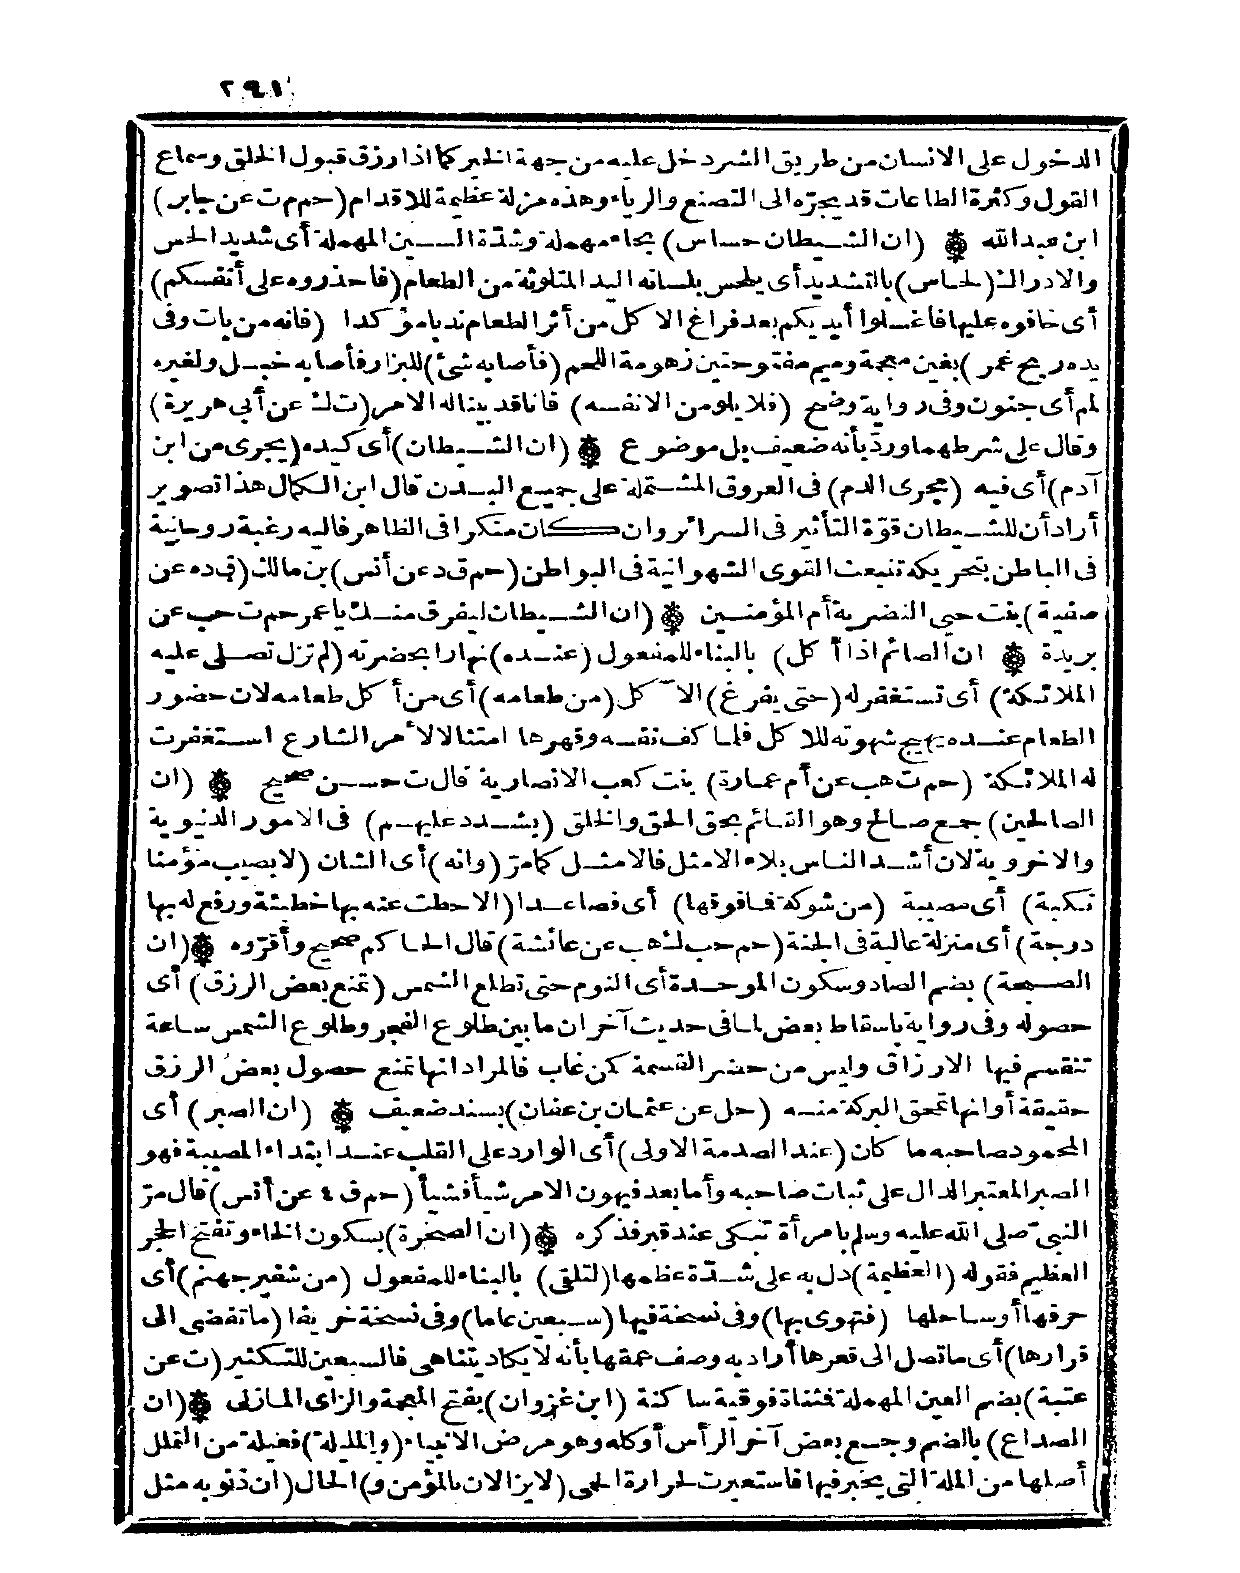 ٢٩١
الدخول على الانسان من طريق الشر دخل عليه من جهة الخير كما اذا رزق قبول الخلق وسماع
القول وكثرة الطاعات قد يجرّه الى التصنع والرياء وهذه مزلة عظيمة للاقدام (حم م ت عن جابر)
ابن عبدالله ۞ (ان الشيطان حساس) بحاء مهملة وشدّة السين المهملة أى شديد الحس
والادراك (لحاس) بالتشديد أى يلحس بلسانه اليد المتلوثة من الطعام (فاحذروه على أنفسكم)
أى خافوه عليها فاغسلوا أيديكم بعد فراغ الاكل من أثر الطعام ندبا مؤكدا (فانه من بات وفى
يده ريح غمر) بغين معجمة وميم مفتوحتين زهومة اللحم (فأصابه شئ) للبزار فأصابه خبل ولغيره
لمم أى جنون وفى رواية وضح (فلا يلومن الا نفسه) فانا قد بينا له الامر (ت ك عن أبى هريرة)
وقال على شرطهما وردّ بأنه ضعيف بل موضوع ۞ (ان الشيطان) أى كيده (يجرى من ابن
آدم) أى فيه (مجرى الدم) فى العروق المشتملة على جميع البدن قال ابن الكمال هذا تصوير
أراد أن للشيطان قوّة التأثير فى السرائر وان كان منكرا فى الظاهر فاليه رغبة روحانية
فى الباطن بتحريكه تنبعث القوى الشهوانية فى البواطن (حم ق د عن أنس) بن مالك (ق د ه عن
صفية) بنت حيى النضرية أم المؤمنين ۞ (ان الشيطان ليفرق منك يا عمر حم ت حب عن
بريدة ۞ ان الصائم اذا أكل) بالبناء للمفعول (عنده) نهارا بحضرته (لم تزل تصلى عليه
الملائكة) أى تستغفر له (حتى يفرغ) الآكل (من طعامه) أى من أكل طعامه لان حضور
الطعام عنده يهيج شهوته للاكل فلما كف نفسه وقهرها امتثالا لأمر الشارع استغفرت
له الملائكة (حم ت هب عن أم عمارة) بنت كعب الانصارية قال ت حسن صحيح ۞ (ان
الصالحين) جمع صالح وهو القائم بحق الحق والخلق (يشدد عليهم) فى الامور الدنيوية
والاخروية لان أشد الناس بلاء الامثل فالامثل كما مرّ (وانه) أى الشان (لا يصيب مؤمنا
نكبة) أى مصيبة (من شوكة فما فوقها) أى فصاعدا (الا حطت عنه بها خطيئة ورفع له بها
درجة) أى منزلة عالية فى الجنة (حم حب ك هب عن عائشة) قال الحاكم صحيح وأقرّوه ۞ (ان
الصبحة) بضم الصاد وسكون الموحدة أى النوم حتى تطلع الشمس (تمنع بعض الرزق) أى
حصوله وفى رواية باسقاط بعض لما فى حديث آخر ان ما بين طلوع الفجر وطلوع الشمس ساعة
تنقسم فيها الارزاق وليس من حضر القسمة كمن غاب فالمراد انها تمنع حصول بعض الرزق
حقيقة أو انها تمحق البركة منه (حل عن عثمان بن عفان) بسند ضعيف ۞ (ان الصبر) أى
المحمود صاحبه ما كان (عند الصدمة الاولى) أى الوارد على القلب عند ابتداء المصيبة فهو
الصبر المعتبر الدال على ثبات صاحبه وأما بعد فيهون الامر شيأ فشيأ (حم ق ٤ عن أنس) قال مرّ
النبىّ صلى الله عليه وسلم بامرأة تبكى عند قبر فذكره ۞ (ان الصخرة) بسكون الخاء وتفتح الحجر
العظيم فقوله (العظيمة) دل به على شدّة عظمها (لتلقى) بالبناء للمفعول (من شفير جهنم) أى
حرفها أو ساحلها (فتهوى بها) وفى نسخة فيها (سبعين عاما) وفى نسخة خريفا (ما تفضى الى
قرارها) أى ما تصل الى قعرها أراد به وصف عمقها بأنه لا يكاد يتناهى فالسبعين للتكثير (ت عن
عتبة) بضم العين المهملة فمثناة فوقية ساكنة (ابن غزوان) بفتح المعجمة والزاى المازنى ۞ (ان
الصداع) بالضم وجع بعض آخر الرأس أو كله وهو مرض الانبياء (والمليلة) فعيلة من التملل
أصلها من الملة التى يخبز فيها فاستعيرت لحرارة الحمى (لا يزالان بالمؤمن و) الحال (ان ذنوبه مثل